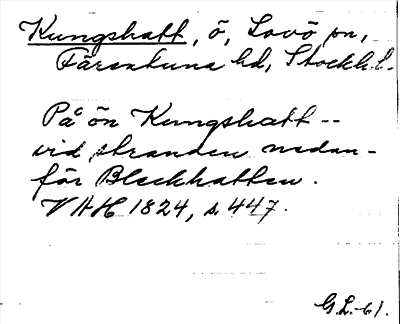 Kungshatt, ö, Lovö sn,
Färentuna hd, Stockh.l.
På ön Kungshatt --
vid stranden nedan-
för Bleckhatten.
VAH 1824, s. 447.
G.L.-61.